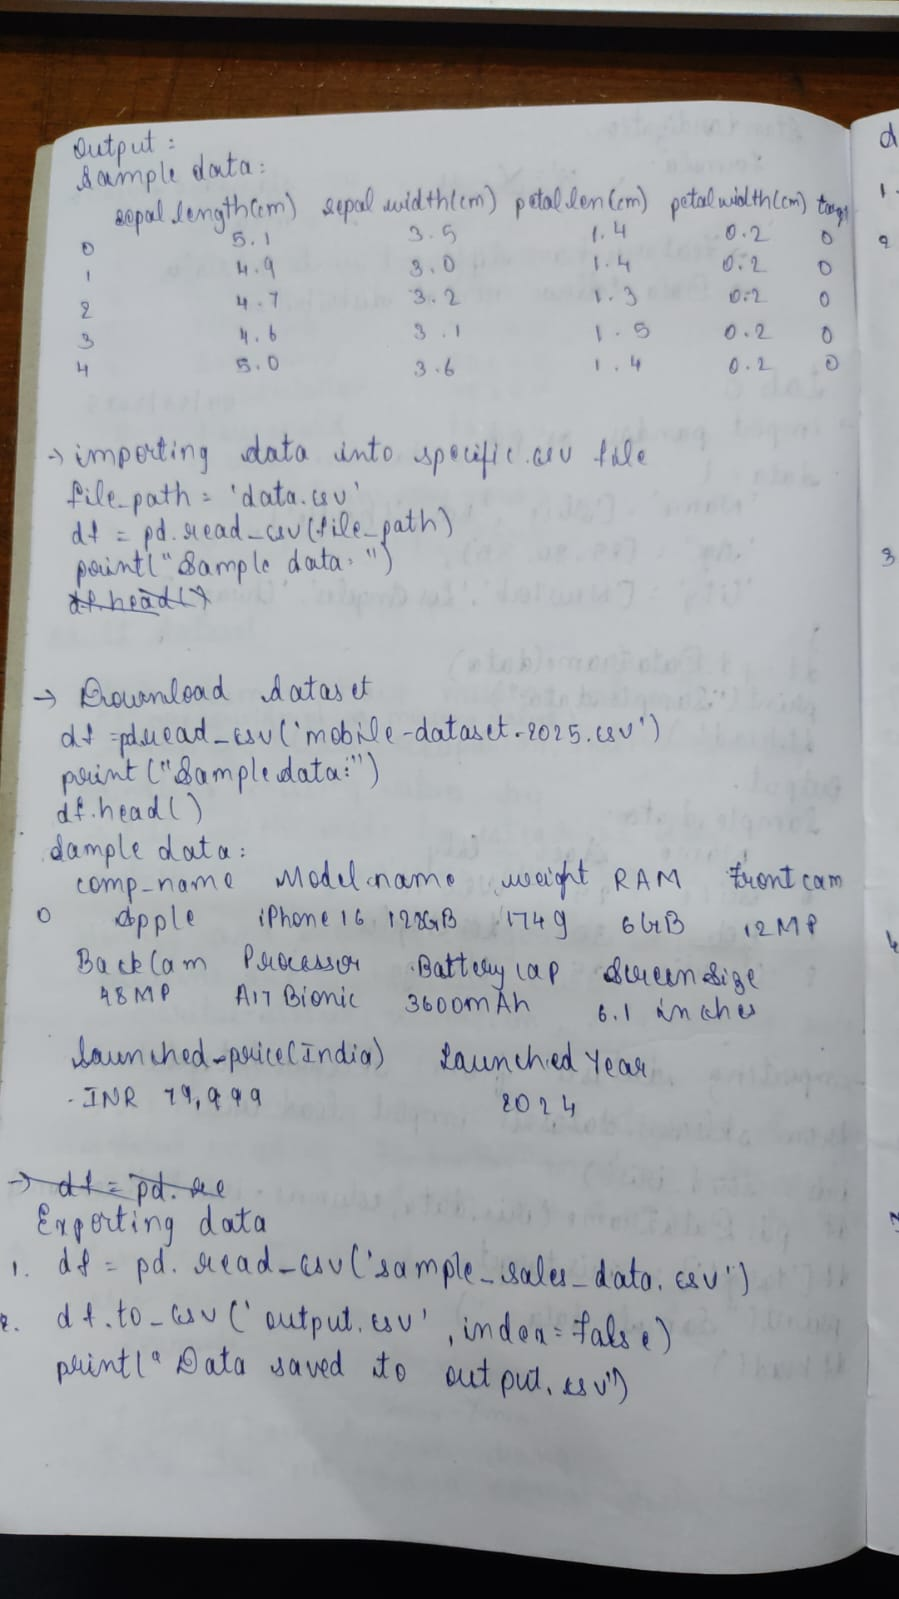 Output :
Sample data:
sepal length(cm) sepal width(cm) petal len(cm) petal width(cm) target
0 5.1 3.5 1.4 0.2 0
1 4.9 3.0 1.4 0.2 0
2 4.7 3.2 1.3 0.2 0
3 4.6 3.1 1.5 0.2 0
4 5.0 3.6 1.4 0.2 0
→ importing data into specific.csv file
file_path = 'data.csv'
df = pd.read_csv(file_path)
print("Sample data:")
df.head()
→ Download dataset
df =pd.read_csv('mobile-dataset-2025.csv')
print ("Sample data:")
df.head()
Sample data:
comp_name Model name weight RAM Front cam
0 Apple iPhone 16 128GB 174g 6GB 12MP
Back Cam Processor Battery cap Screen Size
48MP A17 Bionic 3600mAh 6.1 inches
launched_price(India) Launched Year
INR 79,999 2024
→ df = pd. re
Exporting data
1. df = pd. read_csv('sample_sales_data.csv')
2. df.to_csv('output.csv', index=False)
print(" Data saved to output.csv")
d
1.
2
3